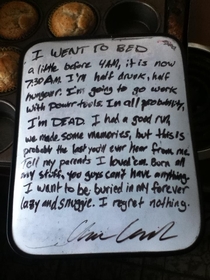 I WENT TO BED
a little before 4AM, it is now
7:30AM. I'm half drunk, half
hungover. I'm going to go work
with power tools. In all probability,
I'm DEAD. I had a good run,
we made some memories, but this is
probably the last you'll ever hear from me.
Tell my parents I loved'em. Burn all
my stuff, you guys can't have anything.
I want to be buried in my forever
lazy and snuggie. I regret nothing.